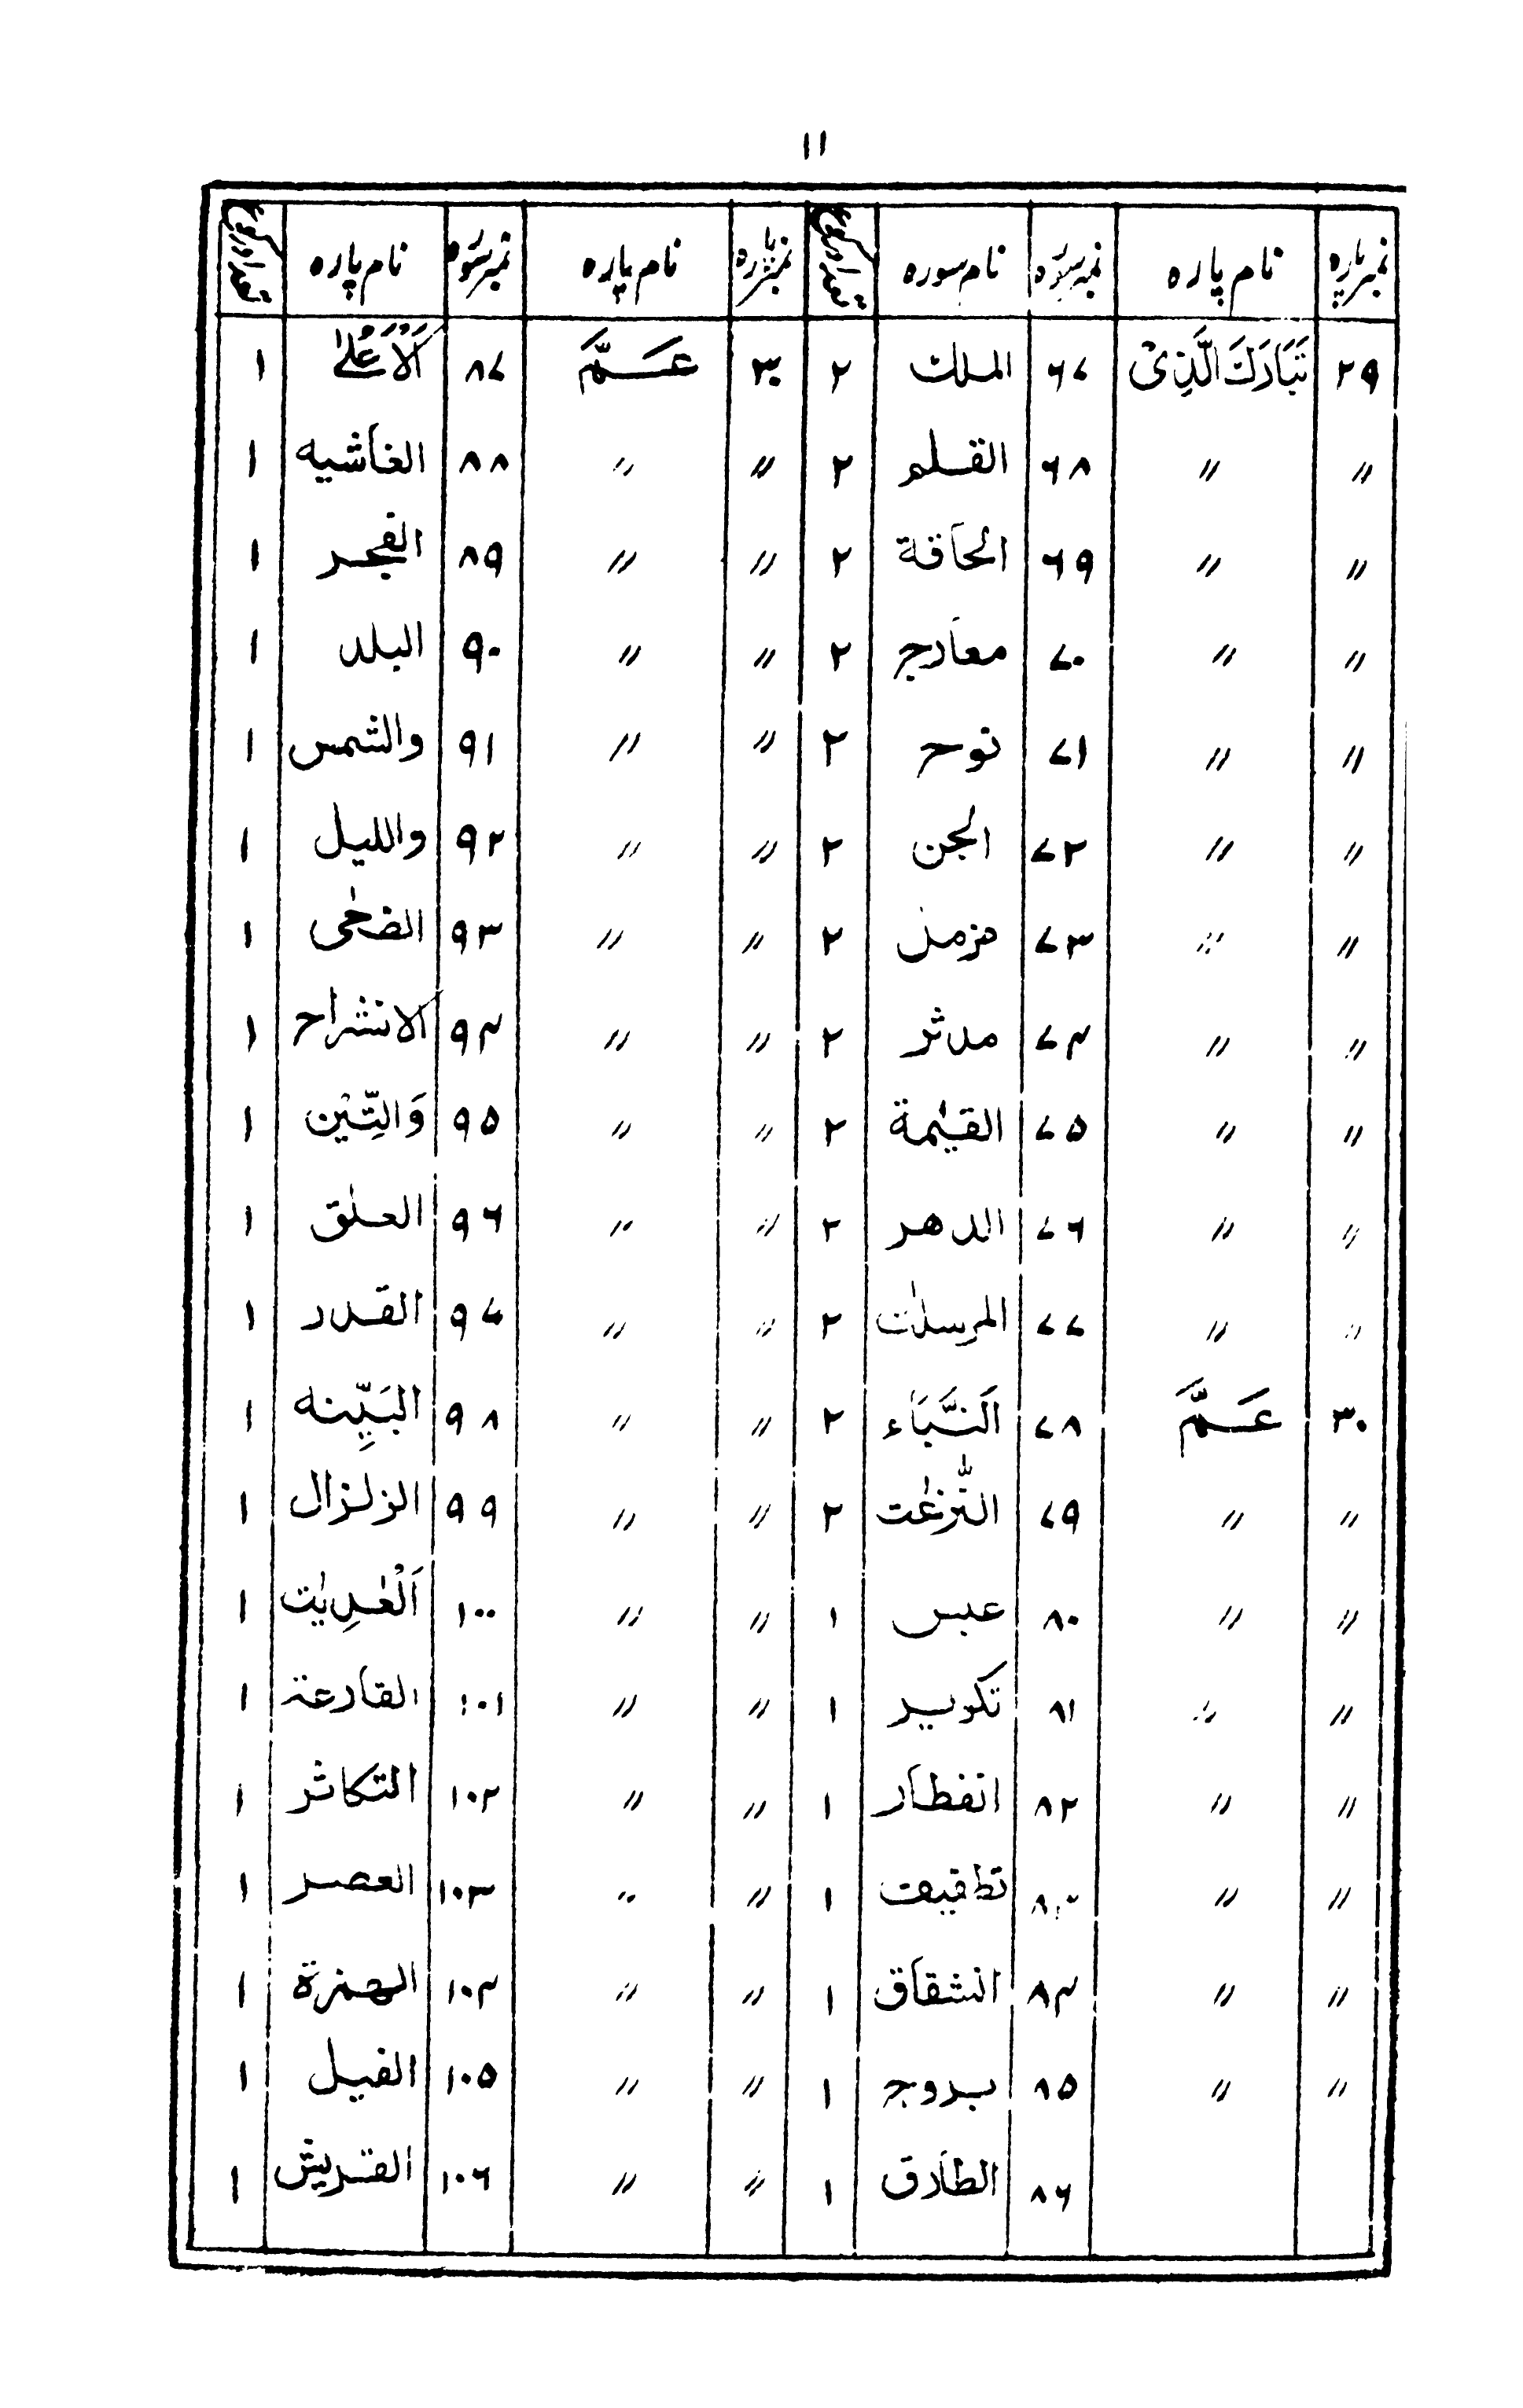 ۱۱
نمبر پارہ نام پارہ نمبر سورہ نام سورہ تعداد رکوع نمبر پارہ نام پارہ نمبر سورہ نام پارہ تعداد رکوع
۲۹ تَبَارَكَ الَّذِیْ ۶۷ الملك ۲ ۳۰ عَــمَّ ۸۷ اَلْاَعْلیٰ ۱
〃 〃 ۶۸ القلم ۲ 〃 〃 ۸۸ الغاشیه ۱
〃 〃 ۶۹ الحاقة ۲ 〃 〃 ۸۹ الفجر ۱
〃 〃 ۷۰ معارج ۲ 〃 〃 ۹۰ البلد ۱
〃 〃 ۷۱ نوح ۲ 〃 〃 ۹۱ والشمس ۱
〃 〃 ۷۲ الجن ۲ 〃 〃 ۹۲ واللیل ۱
〃 〃 ۷۳ مزمل ۲ 〃 〃 ۹۳ الضحٰی ۱
〃 〃 ۷۴ مدثر ۲ 〃 〃 ۹۴ الانشراح ۱
〃 〃 ۷۵ القیٰمة ۲ 〃 〃 ۹۵ وَالتِّیْن ۱
〃 〃 ۷۶ الدهر ۲ 〃 〃 ۹۶ العلق ۱
〃 〃 ۷۷ المرسلات ۲ 〃 〃 ۹۷ القدر ۱
۳۰ عَــمَّ ۷۸ اَلنَّبَاء ۲ 〃 〃 ۹۸ البَیِّنه ۱
〃 〃 ۷۹ النّٰزعٰت ۲ 〃 〃 ۹۹ الزلزال ۱
〃 〃 ۸۰ عبس ۱ 〃 〃 ۱۰۰ اَلْعٰدِیٰت ۱
〃 〃 ۸۱ تکویر ۱ 〃 〃 ۱۰۱ القارعة ۱
〃 〃 ۸۲ انفطار ۱ 〃 〃 ۱۰۲ التکاثر ۱
〃 〃 ۸۳ تطفیف ۱ 〃 〃 ۱۰۳ العصر ۱
〃 〃 ۸۴ انشقاق ۱ 〃 〃 ۱۰۴ الهمزة ۱
〃 〃 ۸۵ بروج ۱ 〃 〃 ۱۰۵ الفیل ۱
۸۶ الطارق ۱ 〃 〃 ۱۰۶ القریش ۱